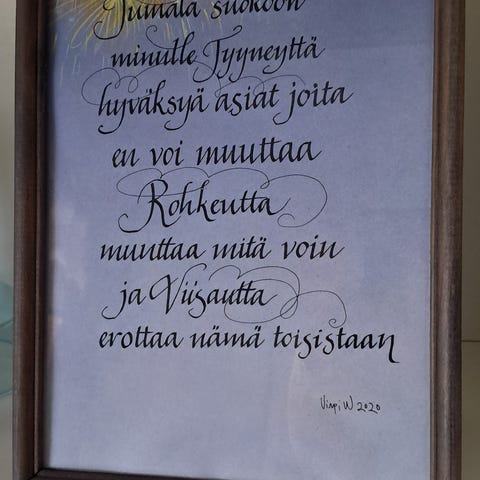 Jumala suokoon
minulle Tyyneyttä
hyväksyä asiat joita
en voi muuttaa
Rohkeutta
muuttaa mitä voin
ja Viisautta
erottaa nämä toisistaan
Virpi W 2020